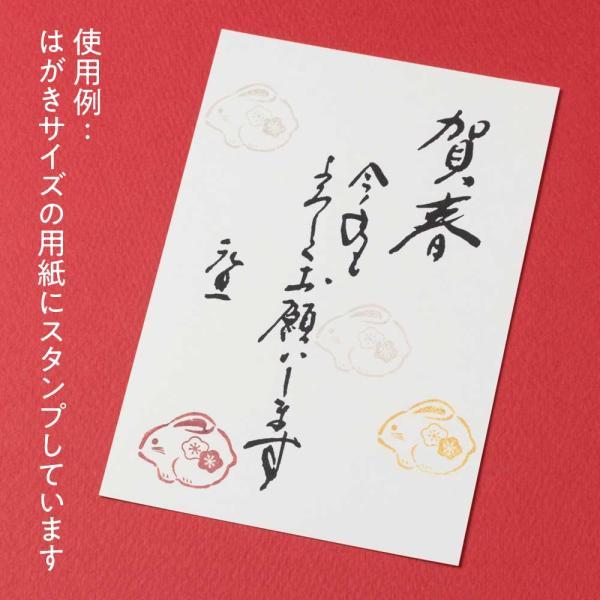 使用例：
はがきサイズの用紙にスタンプしています
賀春
今年も
よろしくお願いします
元旦